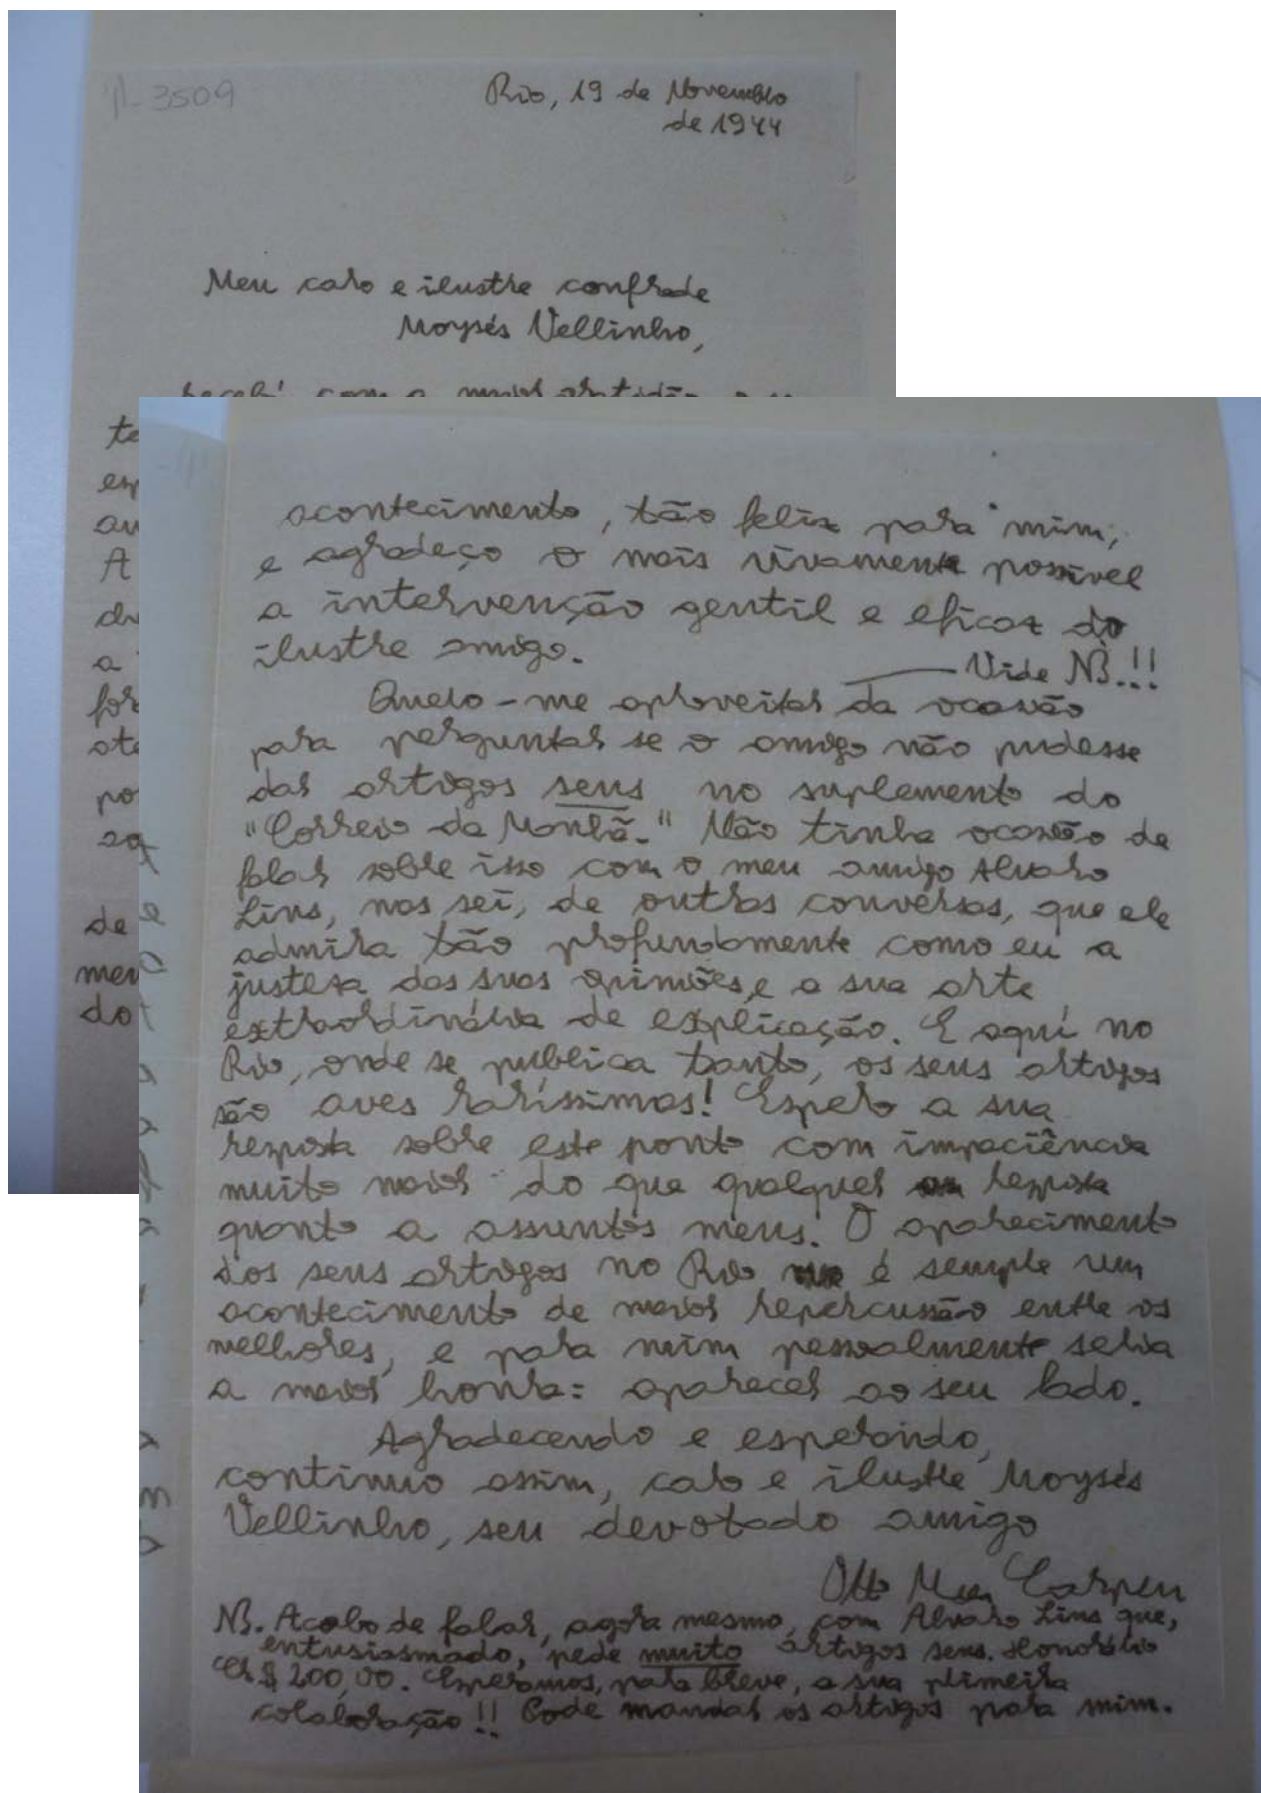 3509
Rio, 19 de Novembro
de 1944
Meu caro e ilustre confrade
Moysés Vellinho,
recebí com a maior gratidão a su
te
esp
au
A
du
a
for
ate
po
de
men
do
acontecimento, tão feliz para mim,
e agradeço o mais vivamente possivel
a intervenção gentil e eficaz do
ilustre amigo.
Vide NB.!!
Quero-me aproveitar da ocasião
para perguntar se o amigo não pudesse
dar artigos seus no suplemento do
"Correio da Manhã." Não tinha ocasião de
falar sobre isso com o meu amigo Alvaro
Lins, mas sei, de outras conversas, que ele
admira tão profundamente como eu a
justeza das suas opiniões, e a sua arte
extraordinária de explicação. E aquí no
Rio, onde se publica tanto, os seus artigos
são aves raríssimas! Espero a sua
resposta sobre este ponto com impaciência
muito maior do que qualquer resposta
quanto a assuntos meus. O aparecimento
dos seus artigos no Rio é sempre um
acontecimento de maior repercussão entre os
melhores, e para mim pessoalmente seria
a maior honra: aparecer ao seu lado.
Agradecendo e esperando,
continuo assim, caro e ilustre Moysés
Vellinho, seu devotado amigo
Otto Maria Carpeau
NB. Acabo de falar, agora mesmo, com Alvaro Lins que,
entusiasmado, pede muito artigos seus. Honorário
Cr$ 200,00. Esperamos, para breve, a sua primeira
colaboração!! Pode mandar os artigos para mim.